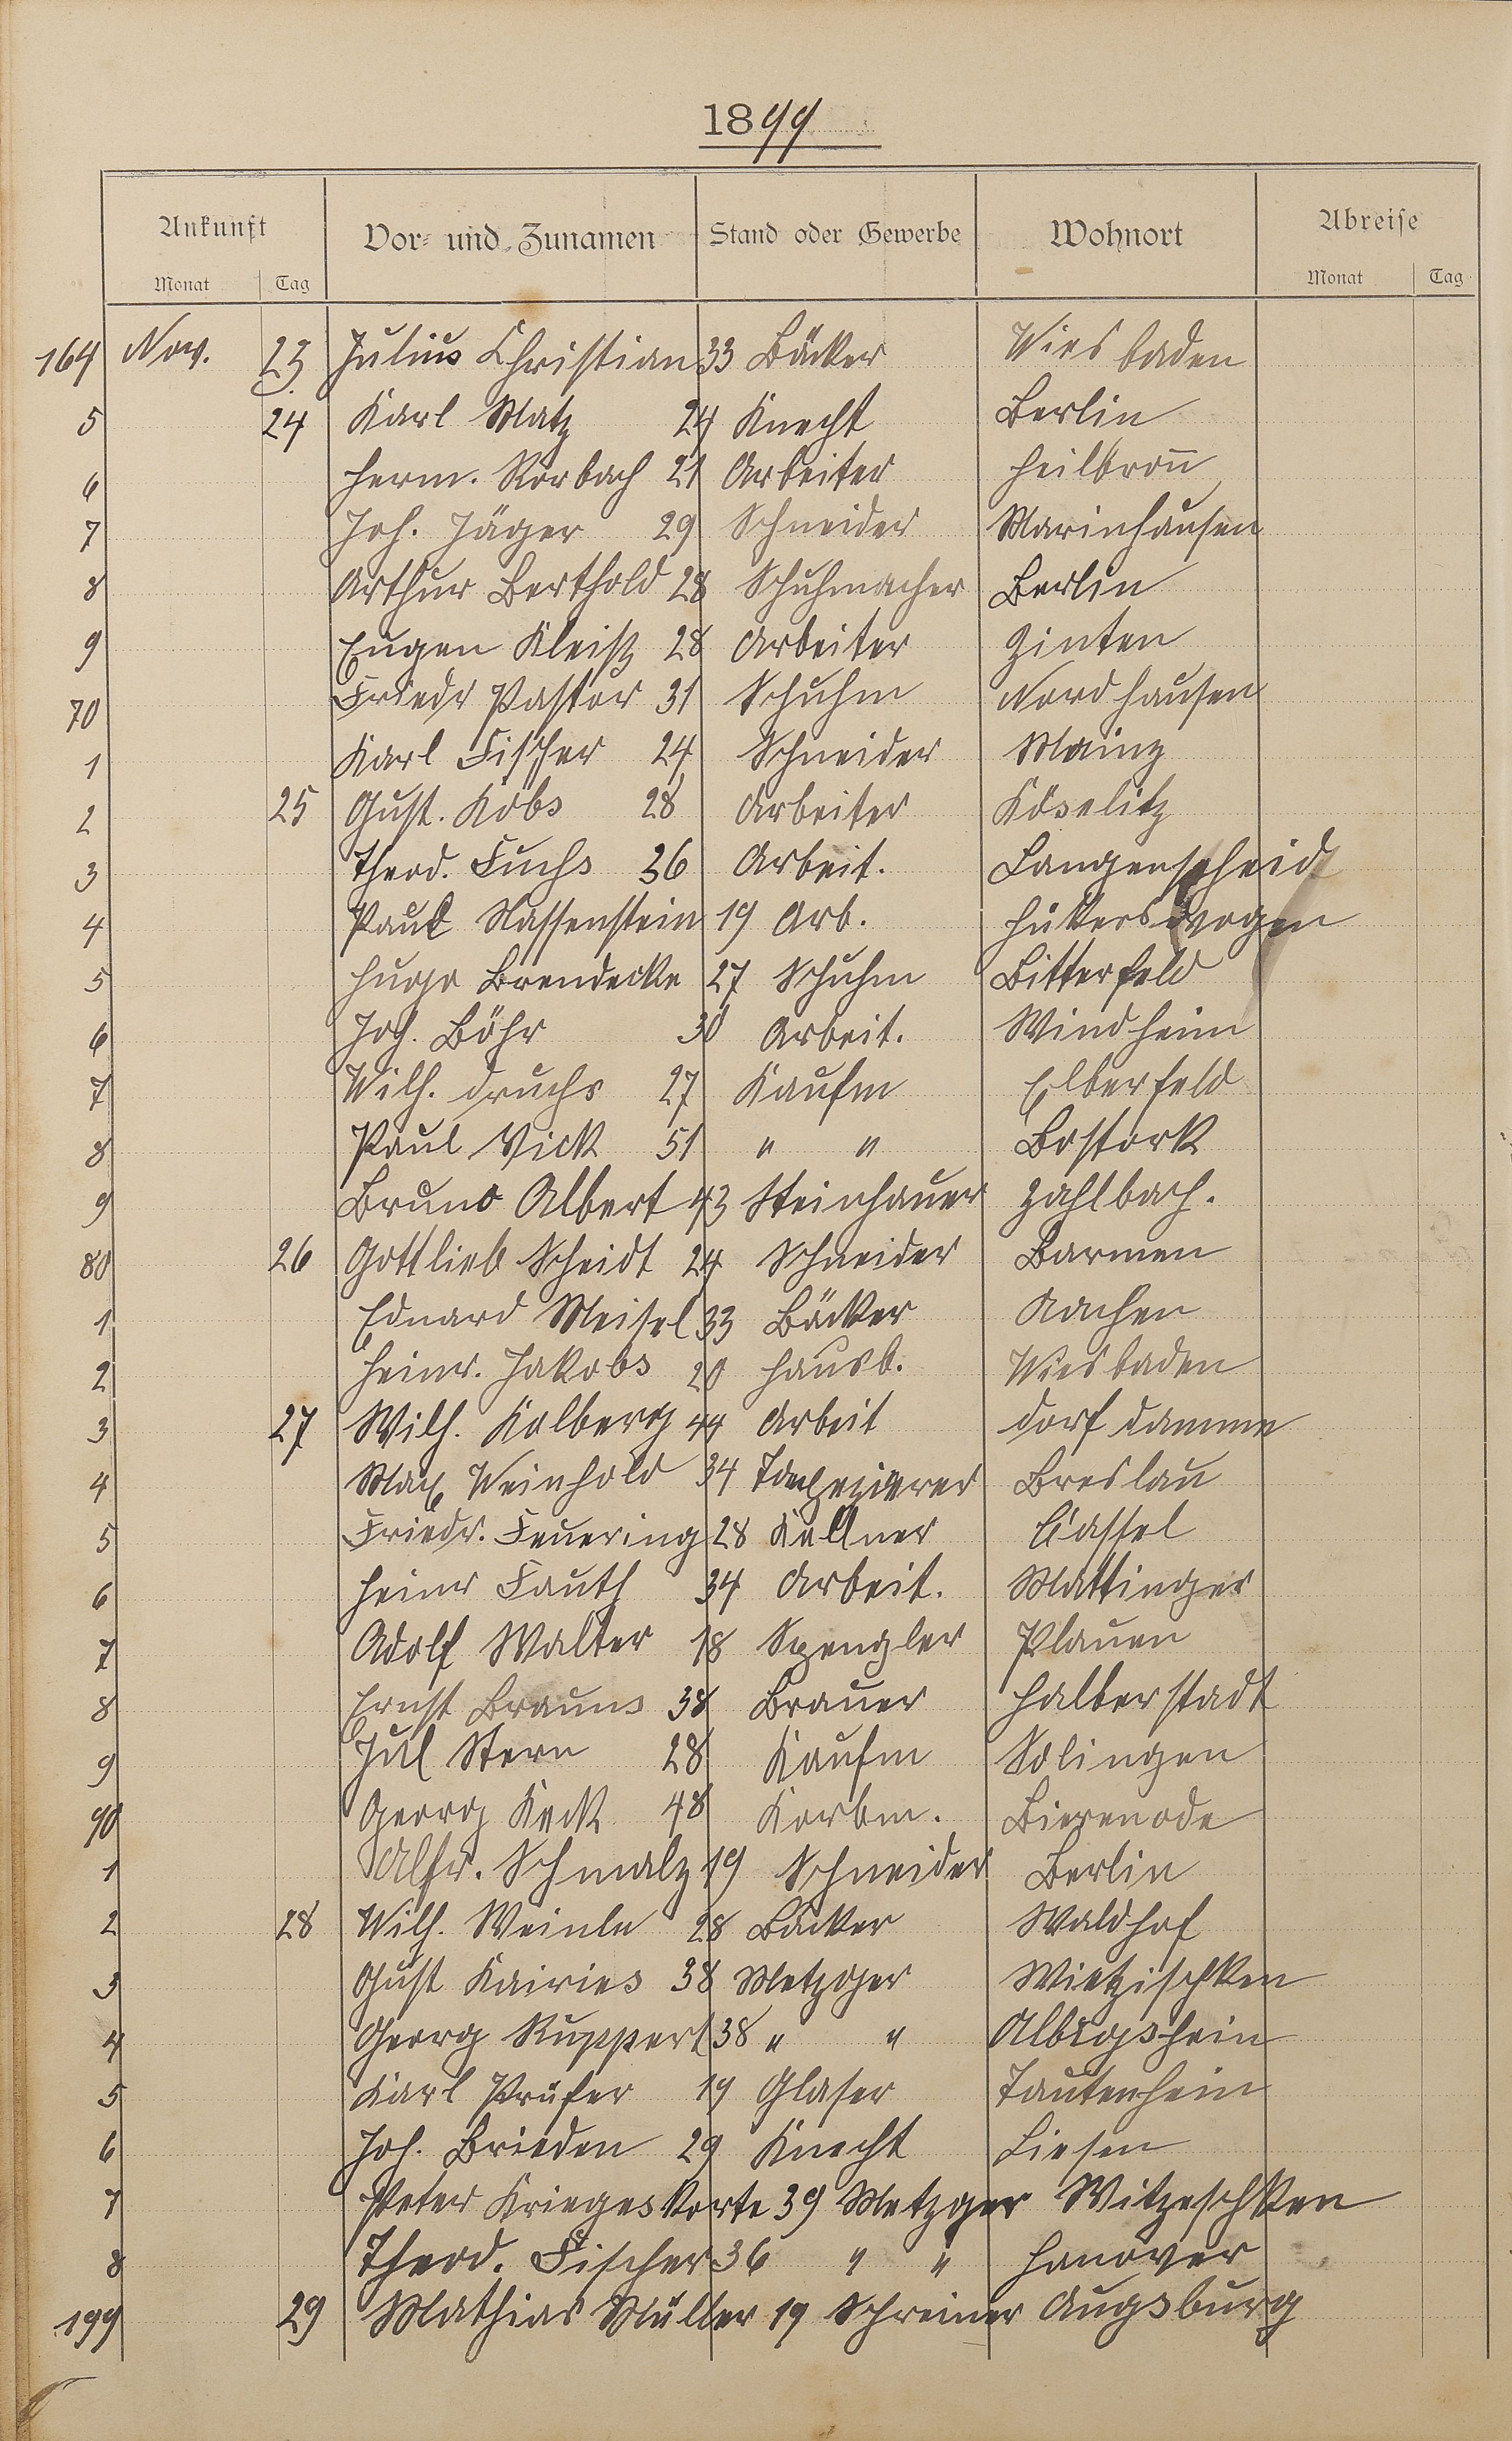 1899
Ankunft Vor- und Zunamen Stand oder Gewerbe Wohnort Abreise
Monat Tag Monat Tag
164 Nov. 23 Julius Christian 33 Bäcker Wiesbaden
5 24 Karl Matz 24 Knecht Berlin
6 Herm. Rorbach 21 Arbeiter Heilbronn
7 Joh. Jäger 29 Schneider Marinhausen
8 Arthur Berthold 28 Schuhmacher Berlin
9 Eugen Kleiß 28 Arbeiter Zinten
70 Friedr Pastor 31 Schuhm Nordhausen
1 Karl Fischer 24 Schneider Mainz
2 25 Gust. Köbs 28 Arbeiter Köselitz
3 Theod. Fuchs 36 Arbeit. Langenscheid
4 Paul Nassenstein 19 Arb. Hükerswagen
5 Hugo Brendecke 27 Schuhm Bitterfeld
6 Joh. Böhr 30 Arbeit. Windheim
7 Wilh. 27 Kaufm Elberfeld
8 Paul Vick 51 " " Rostock
9 Bruno Albert 43 Steinhauer Zahlbach.
80 26 Gottlieb Scheidt 24 Schneider Barmen
1 Eduard Meisel 33 Bäcker Aachen
2 Heinr. Jakobs 20 Hausb. Wiesbaden
3 27 Wilh. Kolberg 44 Arbeit Dorf Damme
4 Max Weinhold 34 Tapezierer Breslau
5 Friedr. Feuering 28 Kellner Cassel
6 Heinr Fauth 34 Arbeit. Mattinger
7 Adolf Walter 18 Spengler Plauen
8 Ernst Brauns 38 Brauer Halberstadt
9 Jul Stern 28 Kaufm Solingen
90 Georg Keck 48 Korbm. Bierenode
1 Alfr. Schmalz 19 Schneider Berlin
2 28 Wilh. Weinle 28 Bäcker Waldhof
3 Gust Kairies 38 Metzger Wietzischken
4 Georg Ruppert 38 " " Albigshein
5 Karl Prüfer 19 Glaser Tautenhein
6 Joh. Brieden 29 Knecht Liesen
7 Peter Krieges Korte 39 Metzger Witzeschken
8 Theod. Fischer 36 " " Hanover
199 29 Mathias Müller 19 Schreiner Augsburg